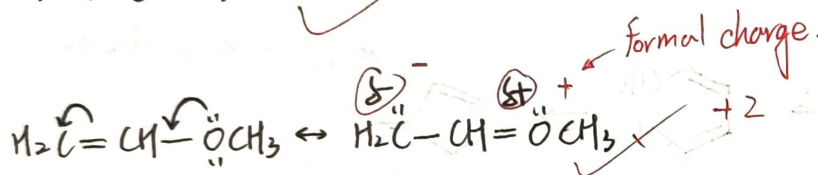 formal charge.
δ- - δ+ +
H₂C=CH-ÖCH₃ ↔ H₂C̈-CH=ÖCH₃ +2